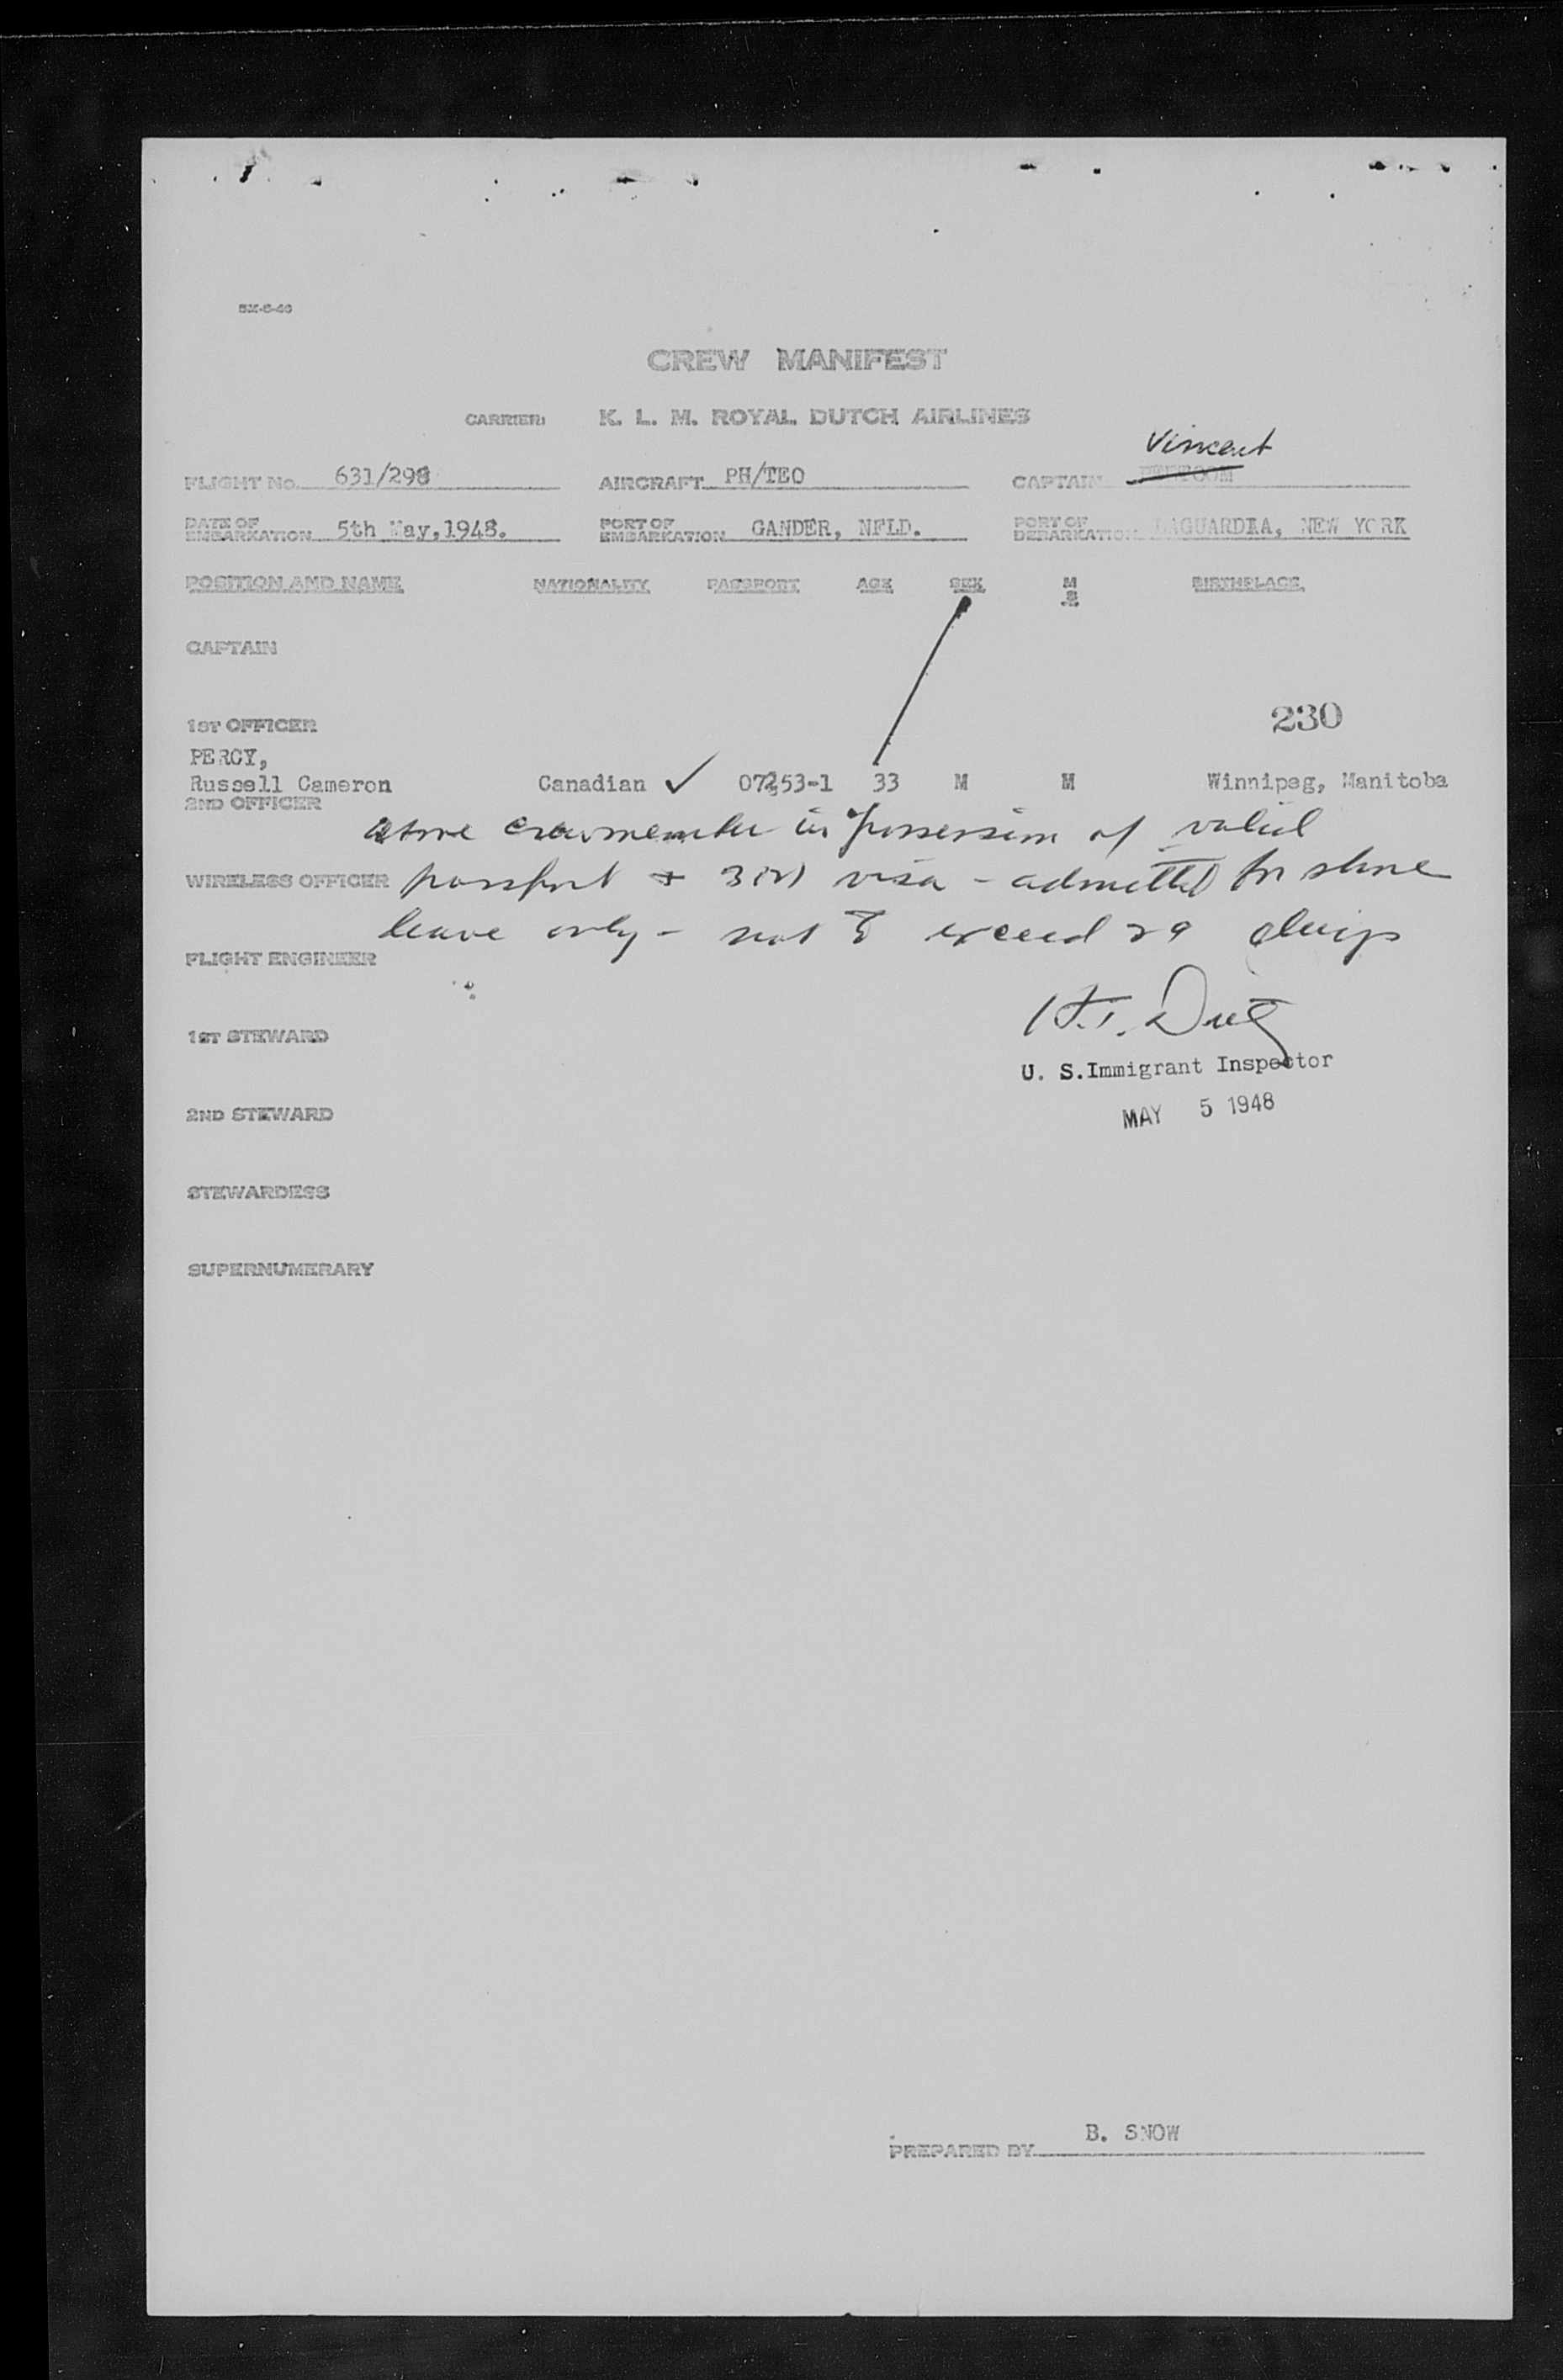 CREW MANIFEST
CARRIER: K. L. M. ROYAL DUTCH AIRLINES
Vincent
FLIGHT No. 631/298 AIRCRAFT PH/TEO CAPTAIN
DATE OF EMBARKATION 5th May, 1948. PORT OF EMBARKATION GANDER, NFLD. PORT OF DEBARKATION LAGUARDIA, NEW YORK
POSITION AND NAME NATIONALITY PASSPORT AGE SEX M S BIRTHPLACE
CAPTAIN
230
1ST OFFICER
PERCY,
Russell Cameron Canadian ✓ 33 M M Winnipeg, Manitoba
2ND OFFICER
above crewmember in possession of valid
WIRELESS OFFICER passport & visa - admitted for shore
leave only - not to exceed 29 days
FLIGHT ENGINEER
1ST STEWARD
U. S. Immigrant Inspector
MAY 5 1948
2ND STEWARD
STEWARDESS
SUPERNUMERARY
B. SNOW
PREPARED BY